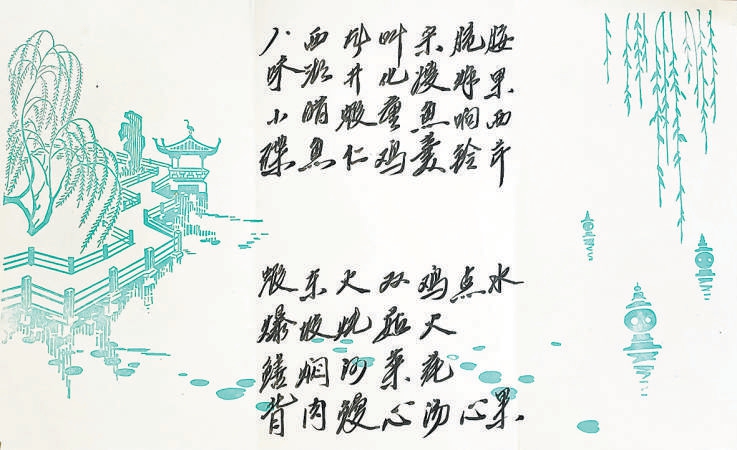 八味小碟
西湖醋鱼
龙井虾仁
叫化童鸡
宋嫂鱼羹
脆炸响铃
腰果西芹
虾爆鳝背
东坡焖肉
火烧河鳗
双菇菜心
鸡火莼汤
点心
水果